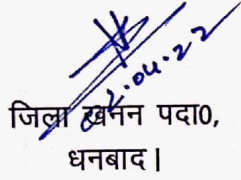 2.04.22
जिला खनन पदा0,
धनबाद।